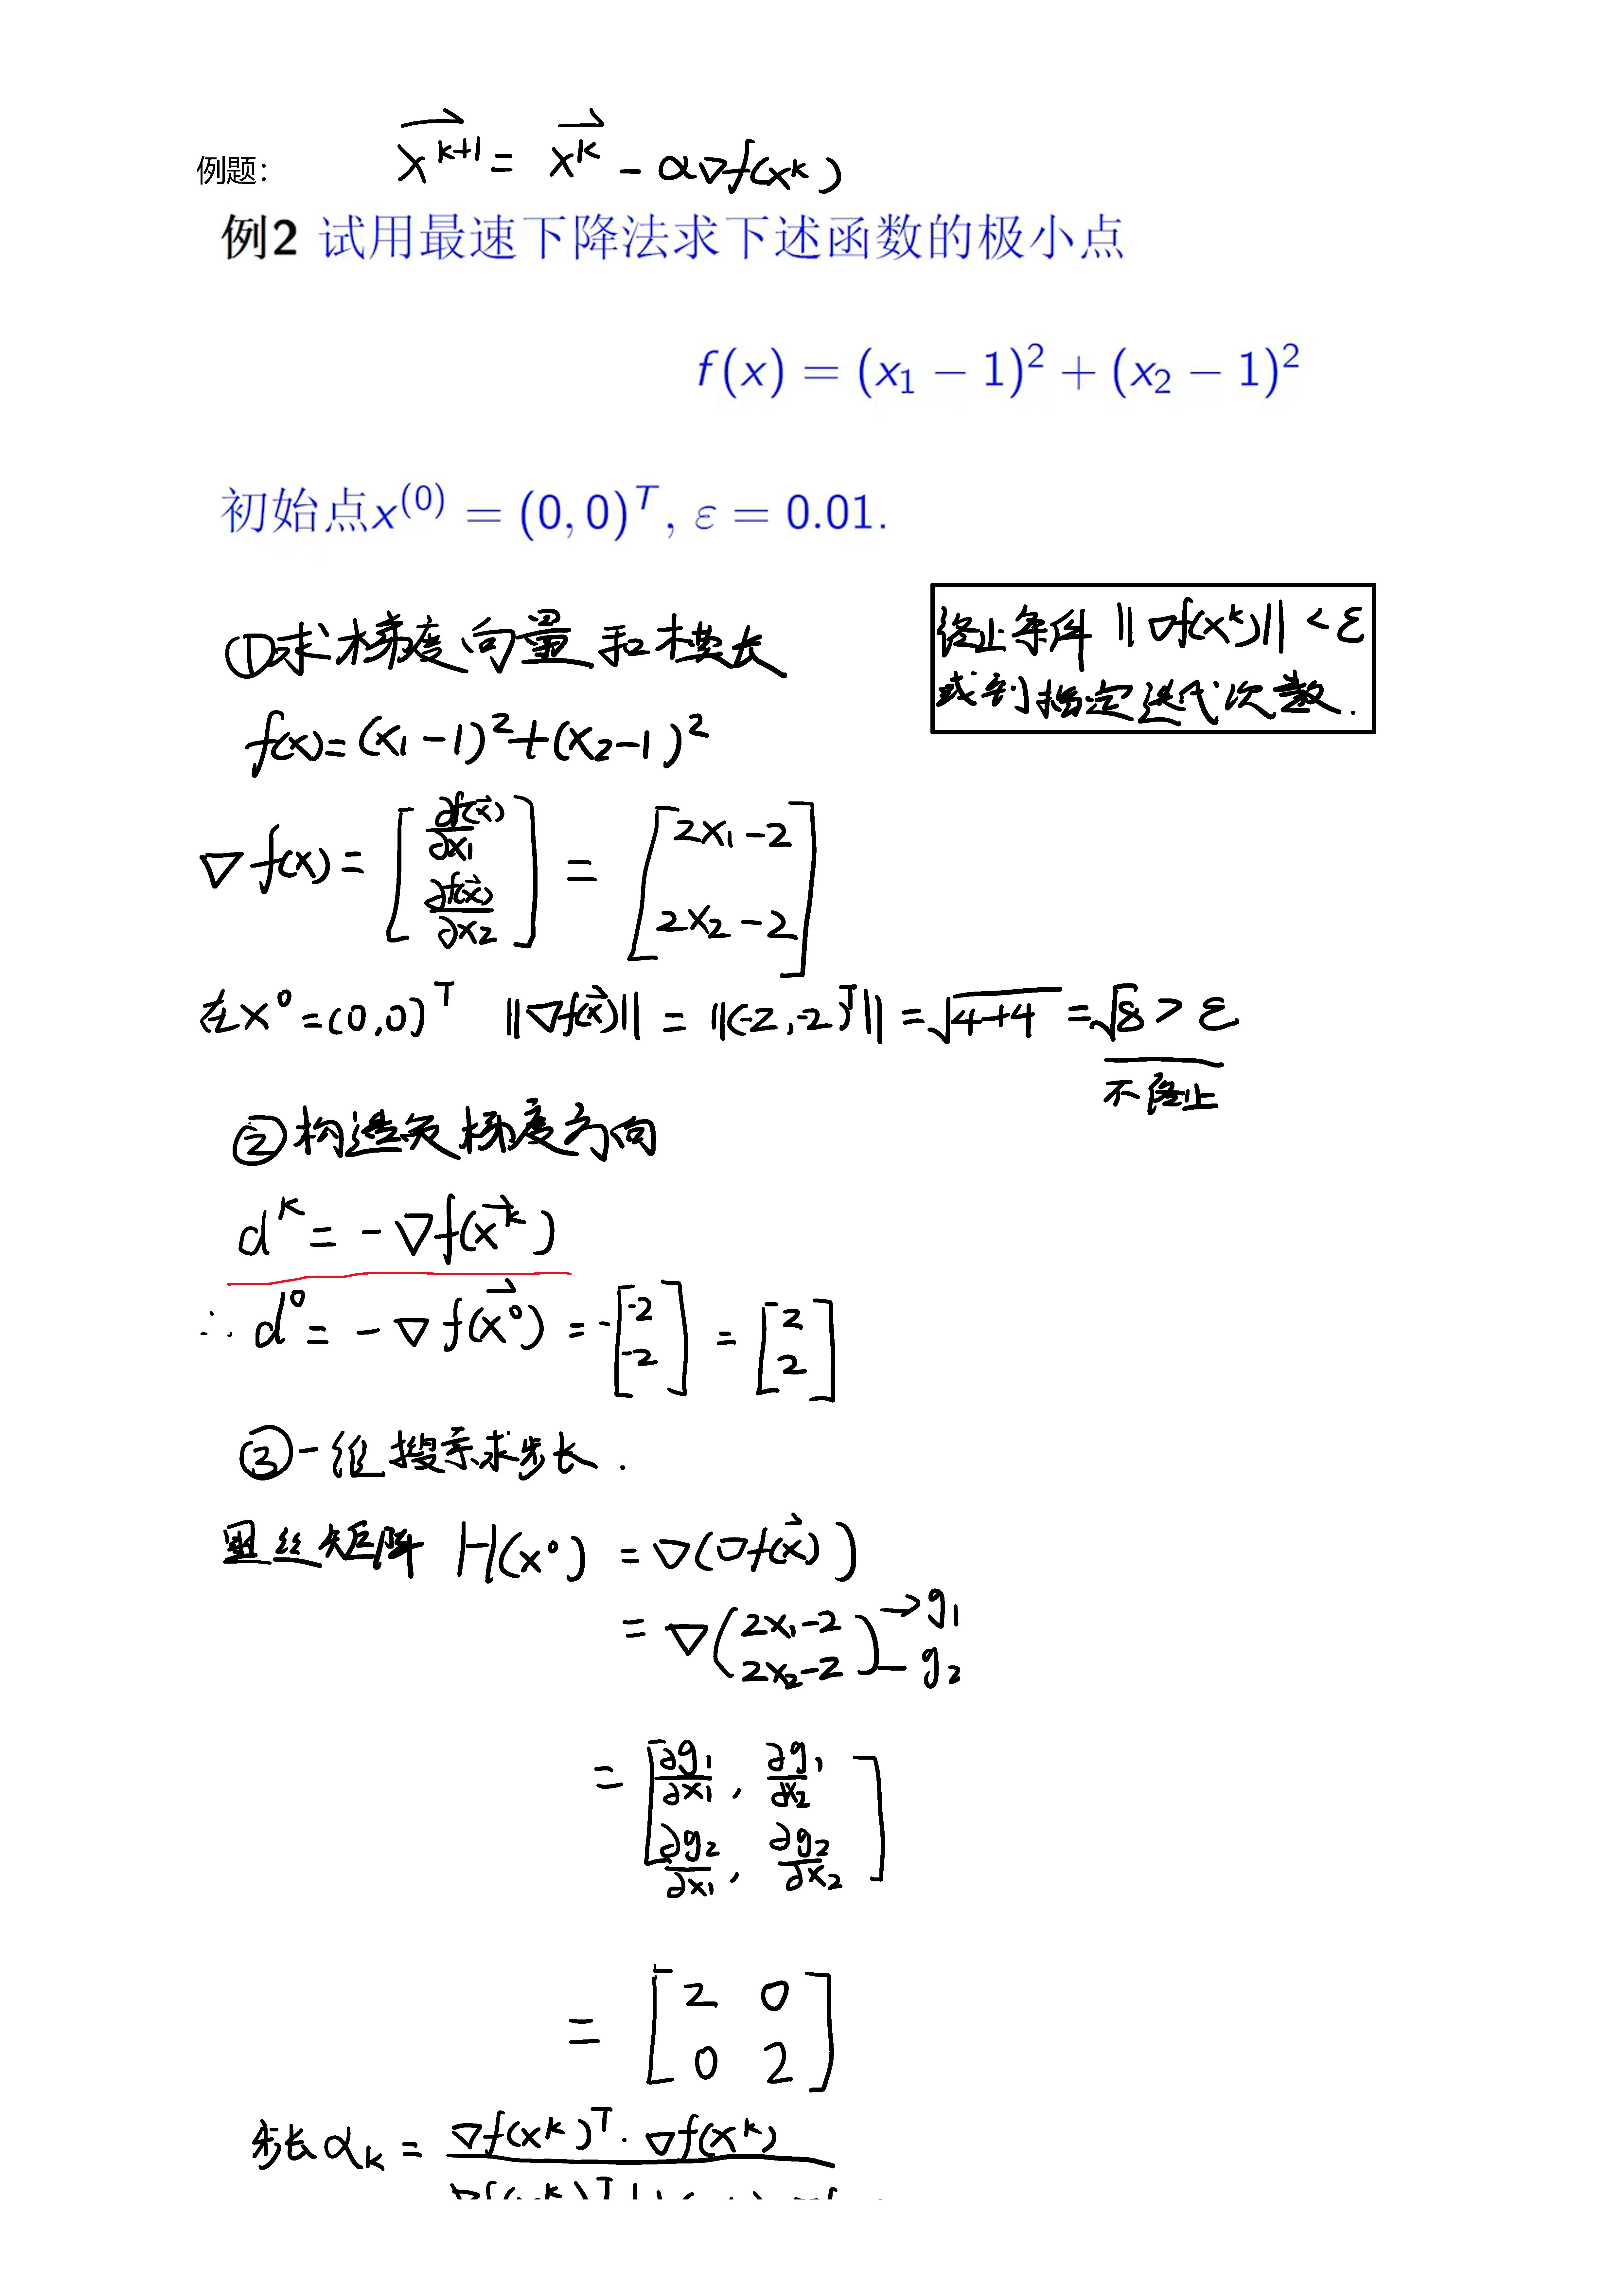 例题： x^{k+1} = x^k - α∇f(x^k)
例2 试用最速下降法求下述函数的极小点
f(x) = (x₁ − 1)² + (x₂ − 1)²
初始点x⁽⁰⁾ = (0, 0)ᵀ, ε = 0.01.
终止条件 ||∇f(x^k)|| < ε
或到指定迭代次数.
①求梯度向量和模长
f(x)=(x₁-1)²+(x₂-1)²
∇f(x) = [∂f(x⃗)/∂x₁; ∂f(x⃗)/∂x₂] = [2x₁-2; 2x₂-2]
在x⁰=(0,0)ᵀ ||∇f(x⃗)|| = ||(-2,-2)ᵀ|| = √(4+4) = √8 > ε
不停止
②构造负梯度方向
d^k = -∇f(x⃗^k)
∴ d⁰ = -∇f(x⃗⁰) = -[-2; -2] = [2; 2]
③一维搜索求步长.
黑丝矩阵 H(x⁰) = ∇(∇f(x⃗))
= ∇(2x₁-2; 2x₂-2) →g₁ —g₂
= [∂g₁/∂x₁, ∂g₁/∂x₂; ∂g₂/∂x₁, ∂g₂/∂x₂]
= [2 0; 0 2]
步长α_k = ∇f(x^k)ᵀ·∇f(x^k)